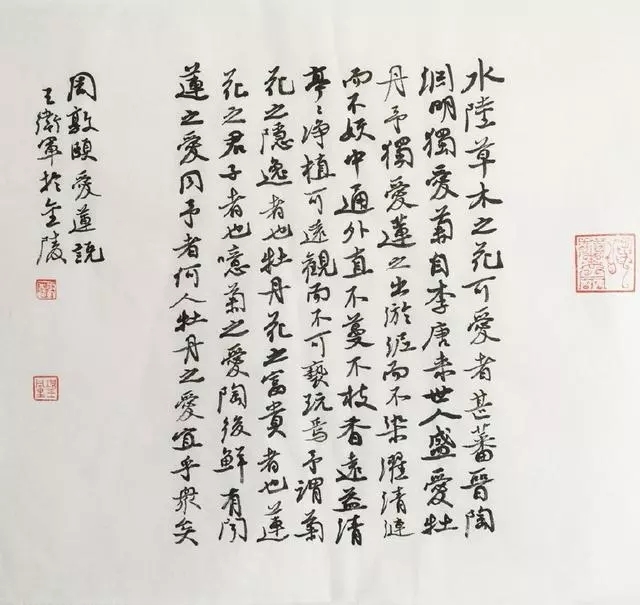 水陸草木之花可愛者甚蕃晉陶
淵明獨愛菊自李唐来世人盛愛牡
丹予獨愛蓮之出淤泥而不染濯清漣
而不妖中通外直不蔓不枝香遠益清
亭〻净植可遠觀而不可褻玩焉予謂菊
花之隱逸者也牡丹花之富貴者也蓮
花之君子者也噫菊之愛陶後鮮有聞
蓮之愛同予者何人牡丹之愛宜乎衆矣
周敦頤愛蓮説
王衛軍於金陵